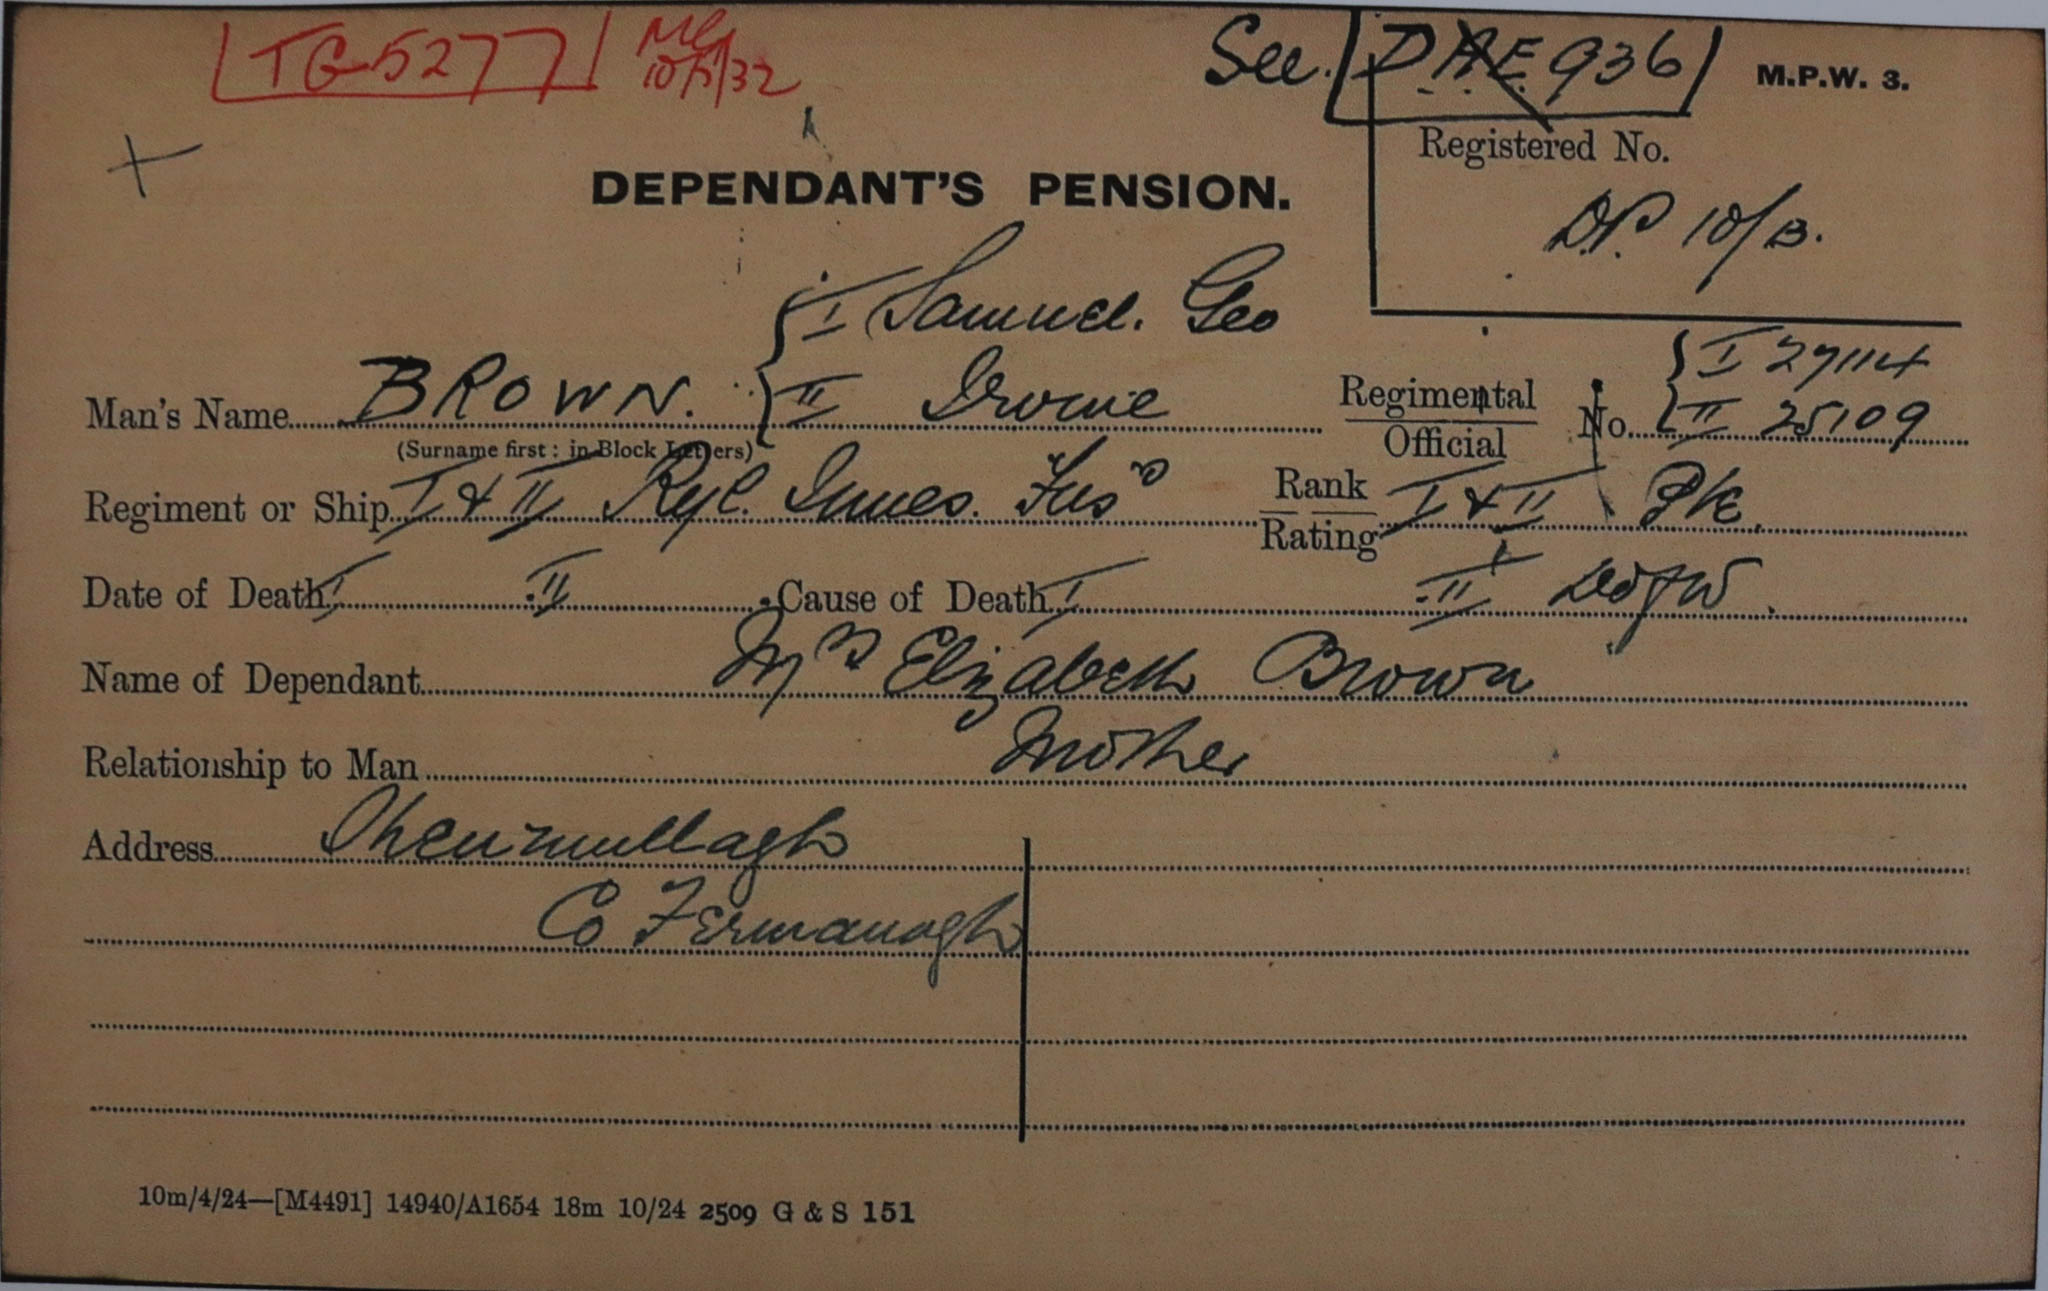 TG 5277 MG 10/5/32
See DAE 936 M.P.W. 3.
Registered No.
DEPENDANT'S PENSION.
D.P. 10/B.
I Samuel. Geo
I 27114
Man's Name BROWN. II Irvine Regimental Official No. II 25109
(Surname first: in Block Letters)
Regiment or Ship I & II Ryl. Innes. Fus Rank Rating I & II Pte.
Date of Death I II Cause of Death I II DofW.
Name of Dependant Mrs Elizabeth Brown
Relationship to Man Mother
Address Drumullagh
Co Fermanagh
10m/4/24—[M4491] 14940/A1654 18m 10/24 2509 G & S 151